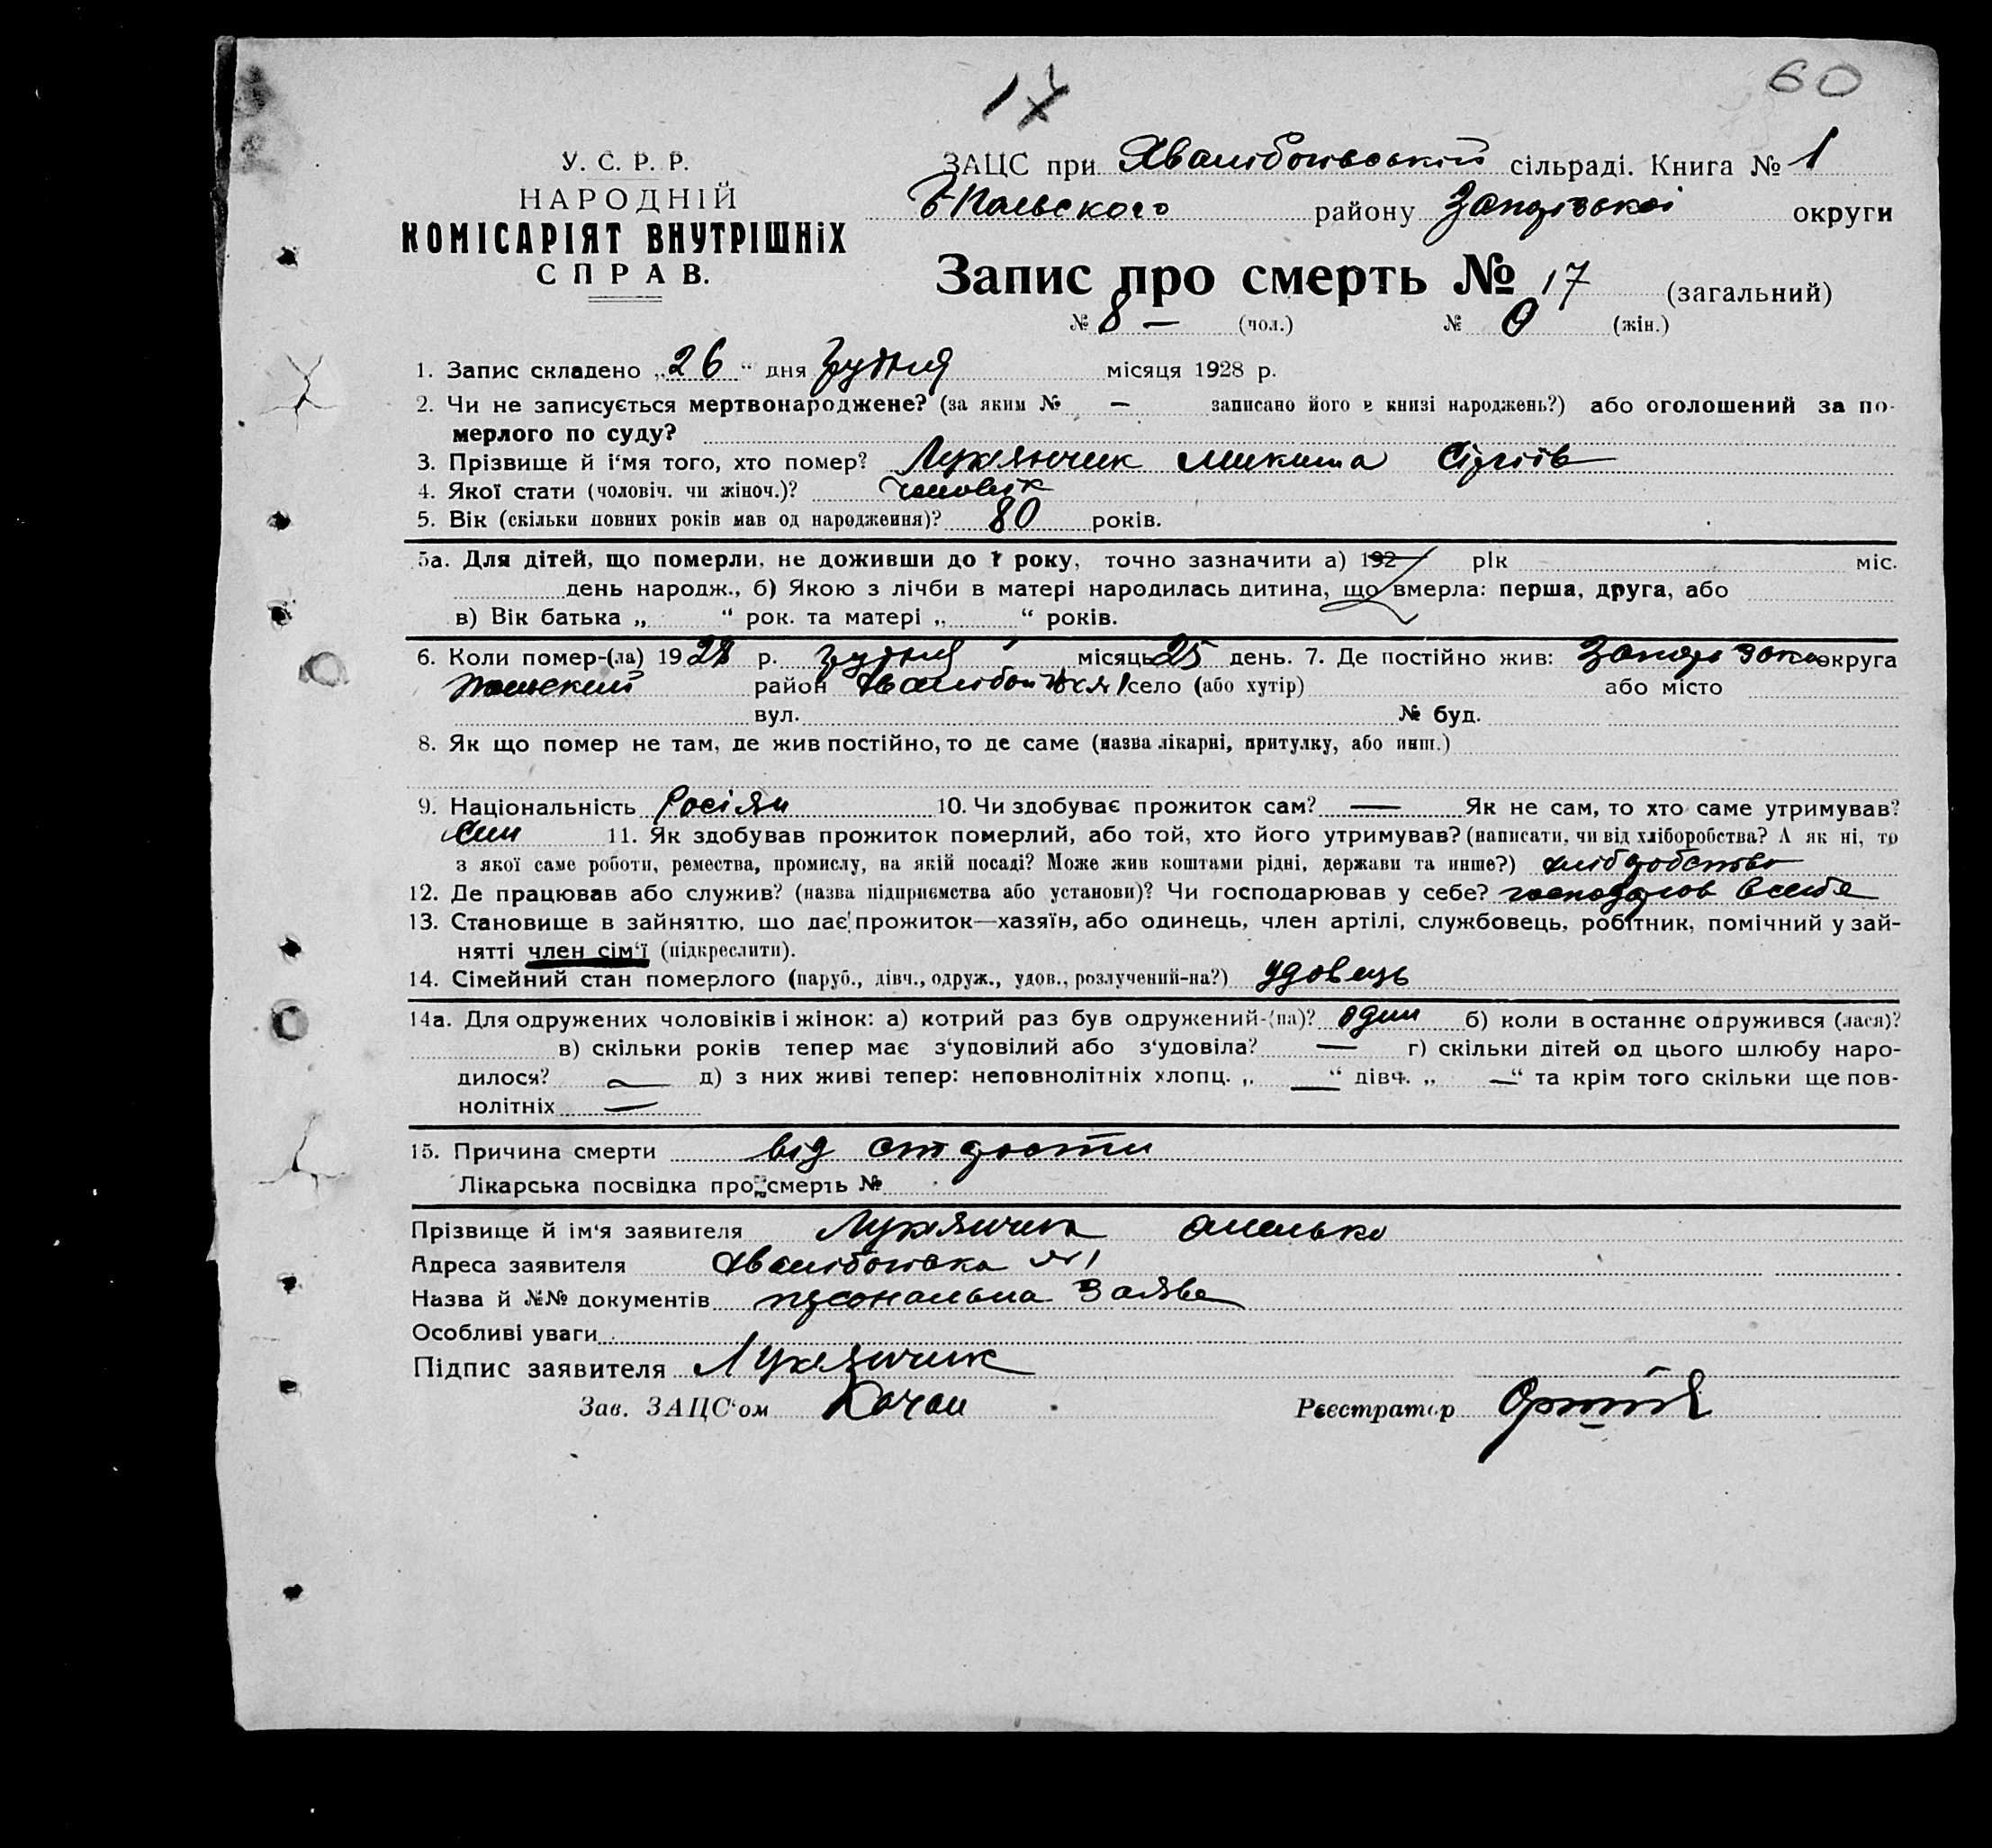 17
60
У. С. Р. Р.
НАРОДНІЙ
КОМІСАРІЯТ ВНУТРІШНіХ
СПРАВ.
ЗАЦС при Хвалібогівській сільраді. Книга № 1
району Запорізької округи
Запис про смерть № 17 (загальний)
№ 8 — (чол.) № 9 (жін.)
1. Запис складено „26“ дня Грудня місяця 1928 р.
2. Чи не записується мертвонароджене? (за яким № — записано його в книзі народжень?) або оголошений за по-
мерлого по суду?
3. Прізвище й і'мя того, хто помер? Лукянчик Микита Сергіїв
4. Якої стати (чоловіч. чи жіноч.)? Чоловік
5. Вік (скільки повних років мав од народження)? 80 років.
5а. Для дітей, що померли, не доживши до 1 року, точно зазначити а) 192 рік міс.
день народж., б) Якою з лічби в матері народилась дитина, що вмерла: перша, друга, або
в) Вік батька „ “ рок. та матері „ “ років.
6. Коли помер-(ла) 1928 р. Грудня місяць 25 день. 7. Де постійно жив: округа
район 1 село (або хутір) або місто
вул. № буд.
8. Як що помер не там, де жив постійно, то де саме (назва лікарні, притулку, або инш.)
9. Національність Росіян 10. Чи здобуває прожиток сам? — Як не сам, то хто саме утримував?
Син 11. Як здобував прожиток померлий, або той, хто його утримував? (написати, чи від хліборобства? А як ні, то
з якої саме роботи, ремества, промислу, на якій посаді? Може жив коштами рідні, держави та инше?) хліборобство
12. Де працював або служив? (назва підприємства або установи)? Чи господарював у себе? господарюв всебе
13. Становище в зайняттю, що дає прожиток—хазяїн, або одинець, член артілі, службовець, робітник, помічний у зай-
нятті член сім'ї (підкреслити).
14. Сімейний стан померлого (паруб., дівч., одруж., удов., розлучений-на?) удовець
14а. Для одружених чоловіків і жінок: а) котрий раз був одружений-(на)? один б) коли в останнє одружився (лася)?
в) скільки років тепер має з'удовілий або з'удовіла? — г) скільки дітей од цього шлюбу наро-
дилося? — д) з них живі тепер: неповнолітніх хлопц. „ —“ дівч. „ —“ та крім того скільки ще пов-
нолітніх —
15. Причина смерти від старости
Лікарська посвідка про смерть №
Прізвище й ім'я заявителя Лукянчик Омелько
Адреса заявителя Хвалібогівка №1
Назва й №№ документів персональна Заява
Особливі уваги
Підпис заявителя Лукянчик
Зав. ЗАЦС'ом Качан Реєстратор